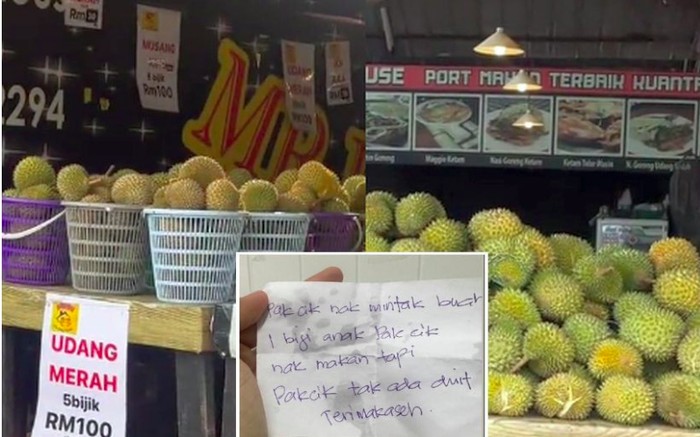 Rm30
2294
MUSANG
5 bijik
Rm100
UDANG
MERAH
RM100
MR
UDANG
MERAH
5bijik
RM100
USE PORT MAKAN TERBAIK KUANT
Goreng
Maggie Ketam
Nasi Goreng Ketam
Ketam Telur Masin
N. Goreng Udang
Pakcik nak mintak buat
1 bigi anak Pakcik
nak makan tapi
Pakcik tak ada duit
Terimakaseh.